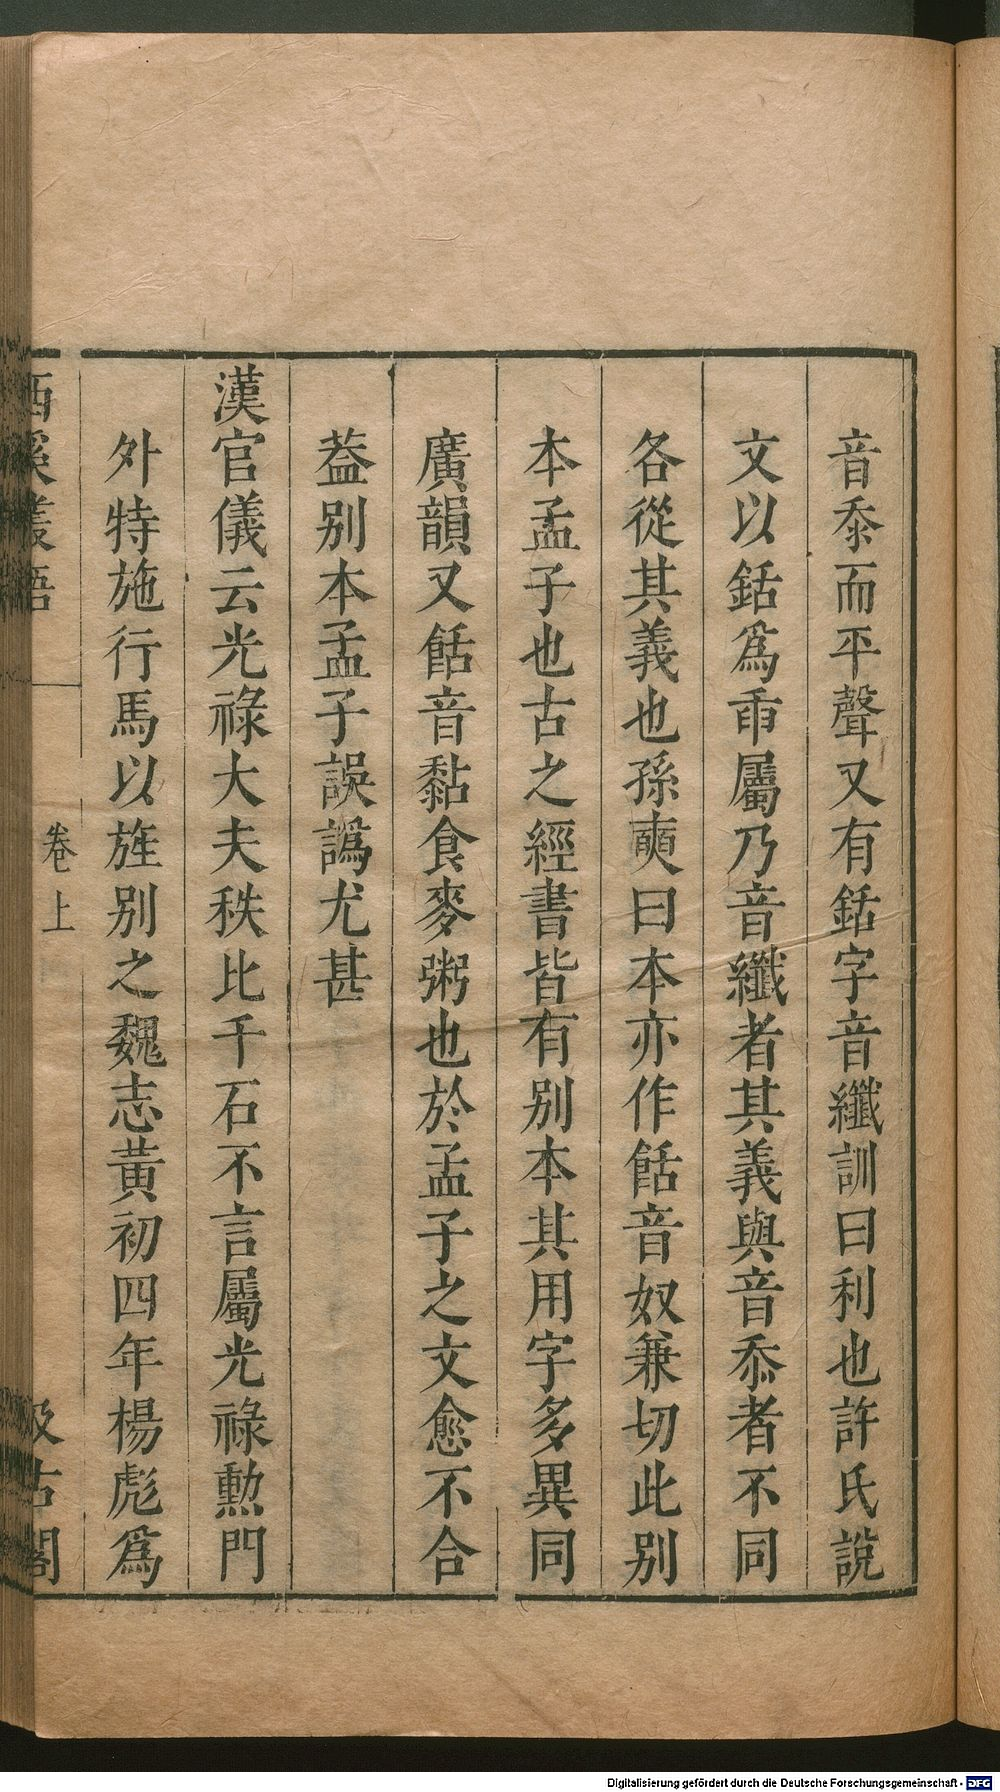 音忝而平聲又有銛字音纖訓曰利也許氏說
文以銛爲臿屬乃音纖者其義與音忝者不同
各從其義也孫奭曰本亦作餂音奴兼切此別
本孟子也古之經書皆有别本其用字多異同
廣韻又餂音黏食麥粥也於孟子之文愈不合
葢别本孟子誤譌尤甚
漢官儀云光祿大夫秩比千石不言屬光祿勲門
外特施行馬以旌别之魏志黃初四年楊彪爲
西溪叢語
卷上
汲古閣
Digitalisierung gefördert durch die Deutsche Forschungsgemeinschaft - DFG